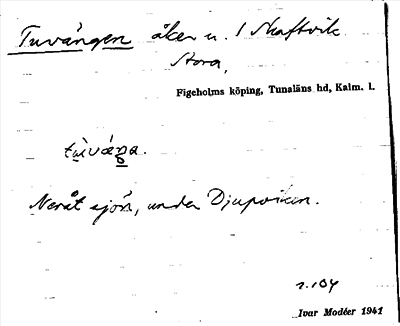 Tuvängen åker u. 1 Skaftvik
Stora,
Figeholms köping, Tunaläns hd, Kalm. l.
tùváŋa.
Neråt sjön, under Djupviken.
r. 104
Ivar Modéer 1941